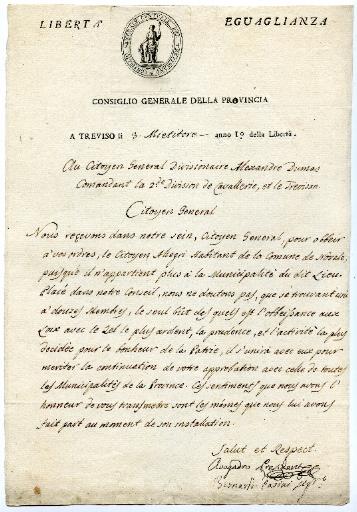 LIBERTÀ EGUAGLIANZA
CONSIGLIO GENERALE DELLA PROVINCIA
A TREVISO li 3 Mietitore anno I.º della Libertà.
Au Citoyen General Divisionaire Alexandre Dumas
Comandant la 2de Division de Cavallerie, et le Trevisan
Citoyen General
Nous reçevons dans notre sein, Citoyen General, pour obbeir
à vos ordres, le Citoyen Allegri Habitant de la Comune de Novale,
puisque il n'appartient plus à la Municipalité du dit Lieu.
Placé dans notre Conseil, nous ne doutons pas, que se trouvant uni
à douze Membres, le seul but des quels est l'obbeissance aux
Loix avec le zel le plus ardent, la prudence, et l'activité la plus
decidée pour le bonheur de la Patrie, il s'unira avec eux pour
meriter la continuation de votre approbation avec celle de toutes
les Municipalités de la Province. Ces sentimens que nous avons l'
honneur de vous transmetre sont les mêmes que nous lui avons
fait part au moment de son installation.
Salut et Respect.